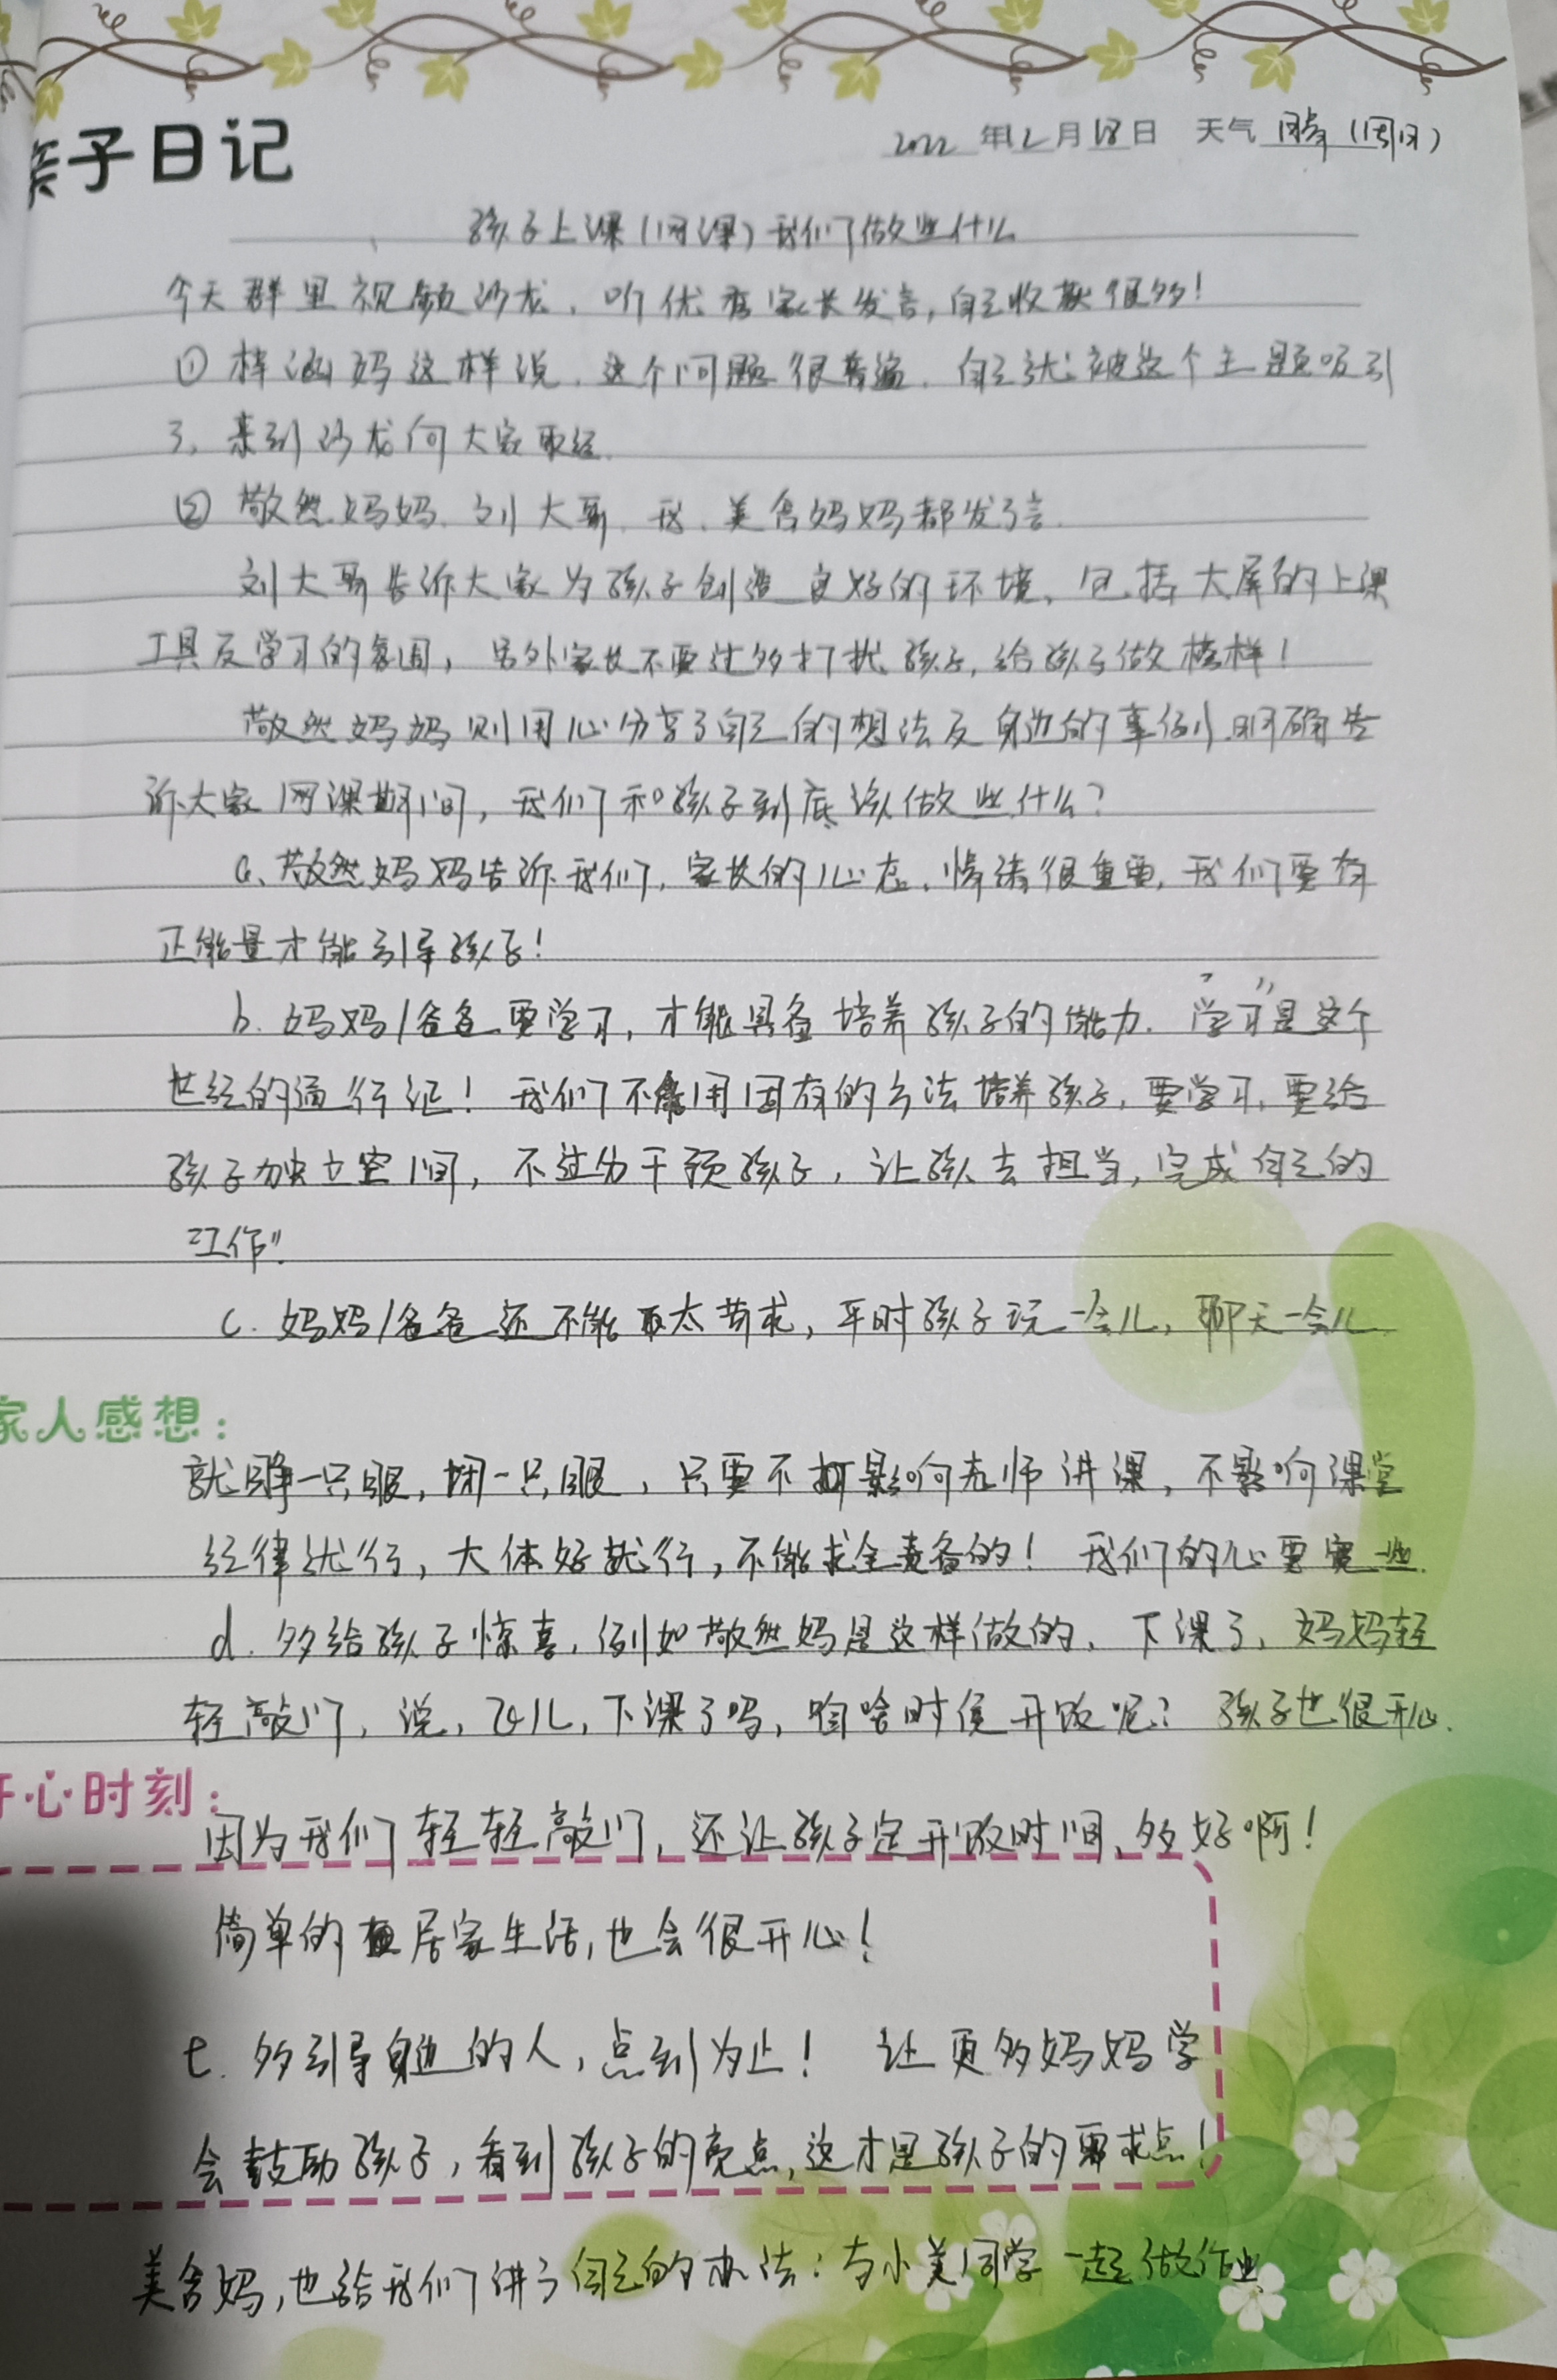 亲子日记
2022 年12月18日 天气 晴(周日)
孩子上课(网课)我们做些什么
今天群里视频沙龙,听优秀家长发言,自己收获很多!
① 梓涵妈这样说,这个问题很普遍,自己就被这个主题吸引
了,来到沙龙向大家取经.
② 敬然妈妈、刘大哥、我、美含妈妈都发了言.
刘大哥告诉大家为孩子创造良好的环境,包括大屏的上课
工具及学习的氛围,另外家长不要过多打扰孩子,给孩子做榜样!
敬然妈妈则用心分享了自己的想法及身边的事例,明确告
诉大家网课期间,我们和孩子到底该做些什么?
a、敬然妈妈告诉我们,家长的心态、情绪很重要,我们要有
正能量才能引导孩子!
b. 妈妈/爸爸要学习,才能具备培养孩子的能力. “学习”是这个
世纪的通行证! 我们不能用固有的方法培养孩子,要学习,要给
孩子独立空间,不过分干预孩子,让孩去担当,完成自己的
“工作”.
c. 妈妈/爸爸还不能要太苛求,平时孩子玩一会儿,聊天一会儿
家人感想:
就睁一只眼,闭一只眼,只要不打影响老师讲课,不影响课堂
纪律就行,大体好就行,不能求全责备的! 我们的心要宽一些.
d. 多给孩子惊喜,例如敬然妈是这样做的,下课了,妈妈轻
轻敲门,说,飞儿,下课了吗,咱啥时侯开饭呢? 孩子也很开心.
开心时刻:
因为我们轻轻敲门,还让孩子定开饭时间,多好啊!
简单的居家生活,也会很开心!
e. 多引导身边的人,点到为止! 让更多妈妈学
会鼓励孩子,看到孩子的亮点,这才是孩子的需求点!
美含妈,也给我们讲了自己的办法:与小美同学一起做作业,